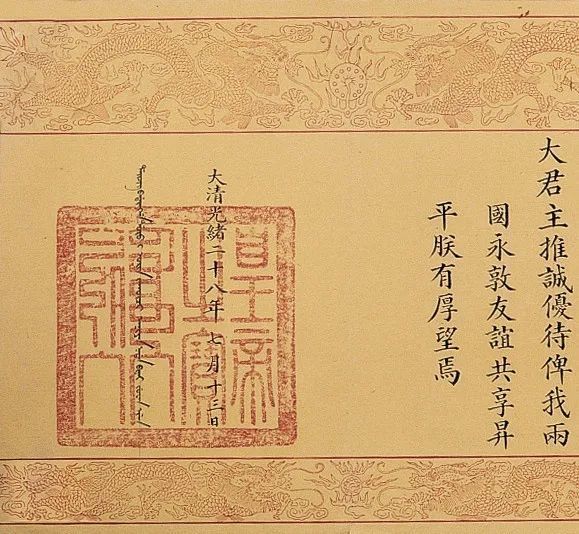 大君主推誠優待俾我兩
國永敦友誼共享昇
平朕有厚望焉
大清光緒二十八年七月十三日
皇帝之寶